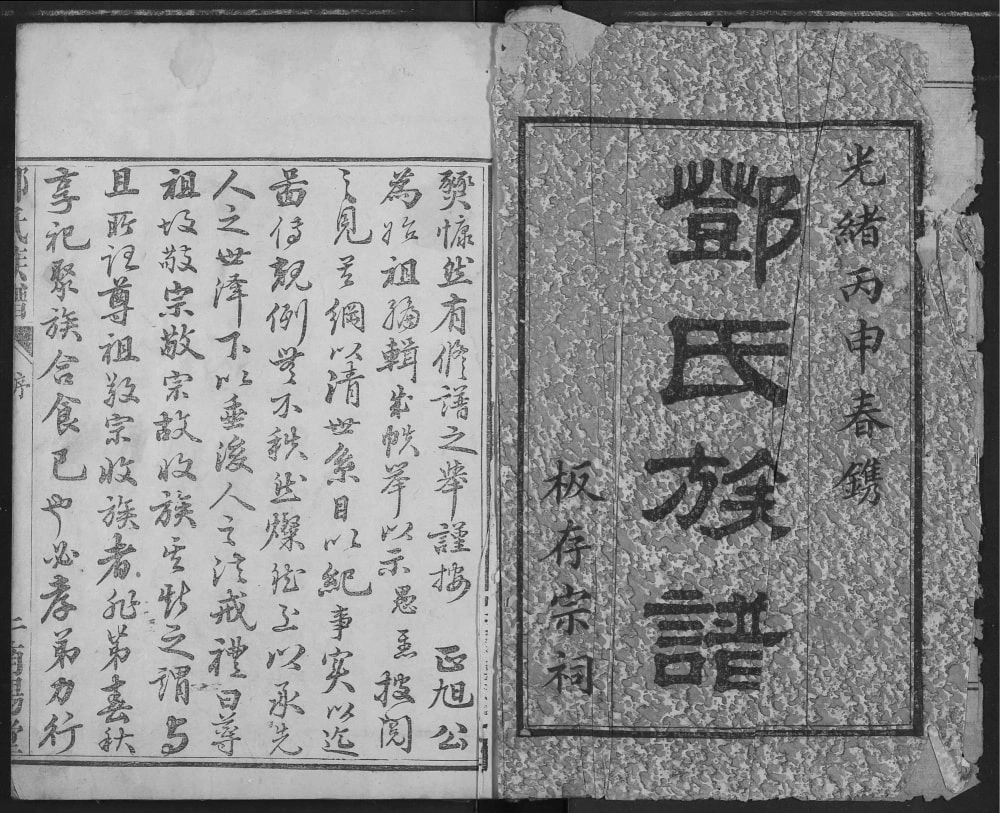 光緒丙申春鐫
鄧氏族譜
板存宗祠
然有修譜之舉謹按 正旭公
為始祖編輯成帙舉以示愚 披閱
之見其綱以清世系目以紀事實以迄
圖傳 例無不秩然燦然上以承先
人之世澤下以垂後人之法戒禮曰尊
祖故敬宗敬宗故收族其斯之謂與
且所謂尊祖敬宗收族者非第春秋
享祀聚族合食已也必孝弟力行
氏族譜
序